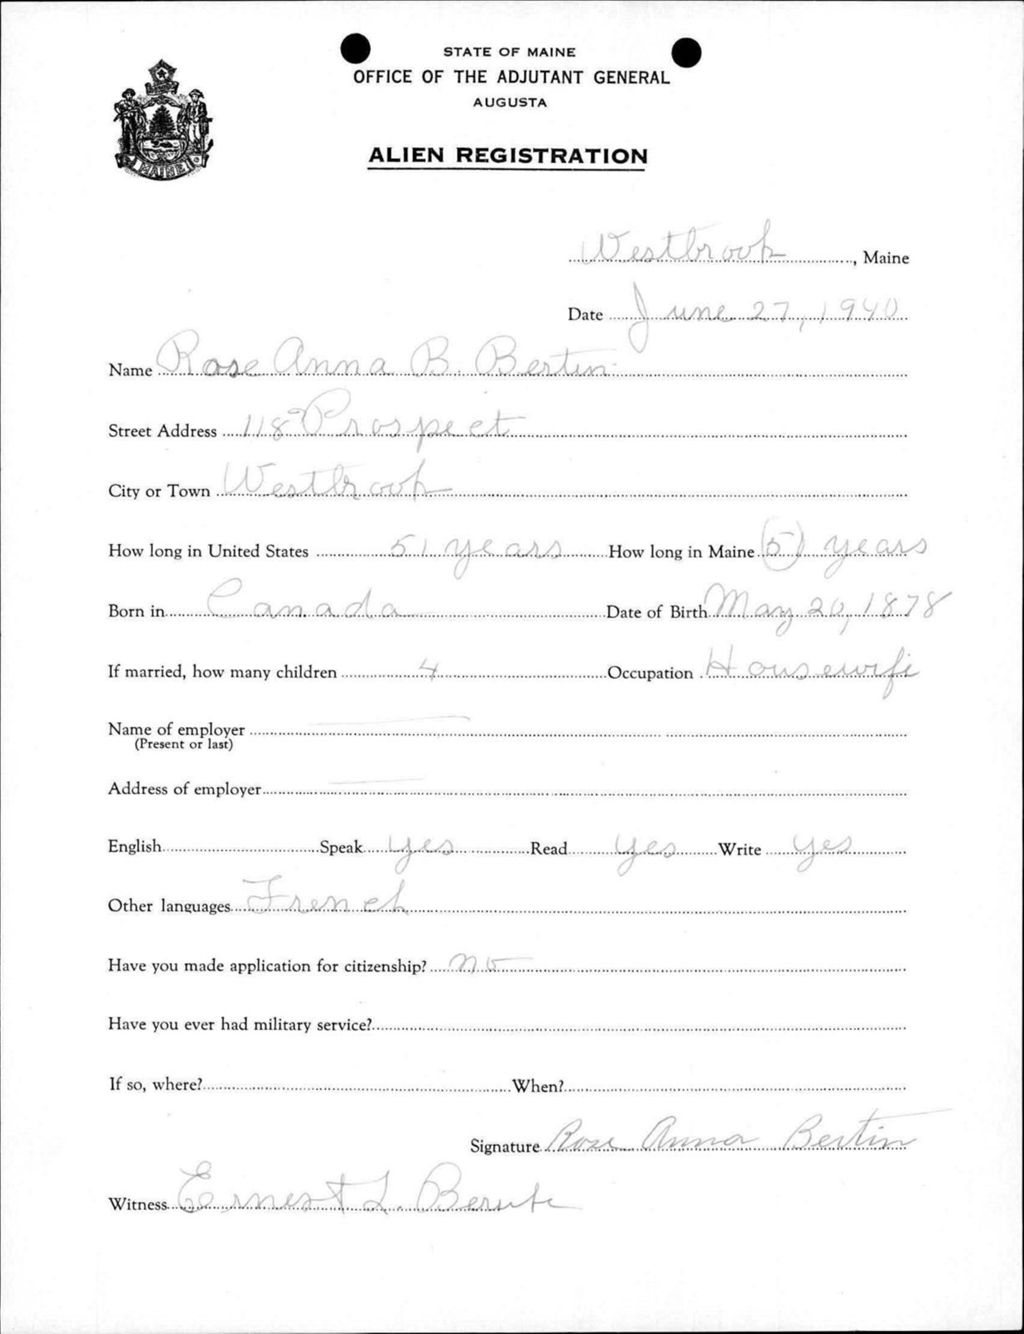 STATE OF MAINE
OFFICE OF THE ADJUTANT GENERAL
AUGUSTA
ALIEN REGISTRATION
MAINE
Westbrook, Maine
Date June 27, 1940
Name Rose Anna B. Bertin
Street Address 118 Prospect
City or Town Westbrook
How long in United States 51 years How long in Maine 51 years
Born in Canada Date of Birth May 20, 1878
If married, how many children 4 Occupation Housewife
Name of employer
(Present or last)
Address of employer
English Speak yes Read yes Write yes
Other languages French
Have you made application for citizenship? no
Have you ever had military service?
If so, where? When?
Signature Rose Anna Bertin
Witness Ernest L.